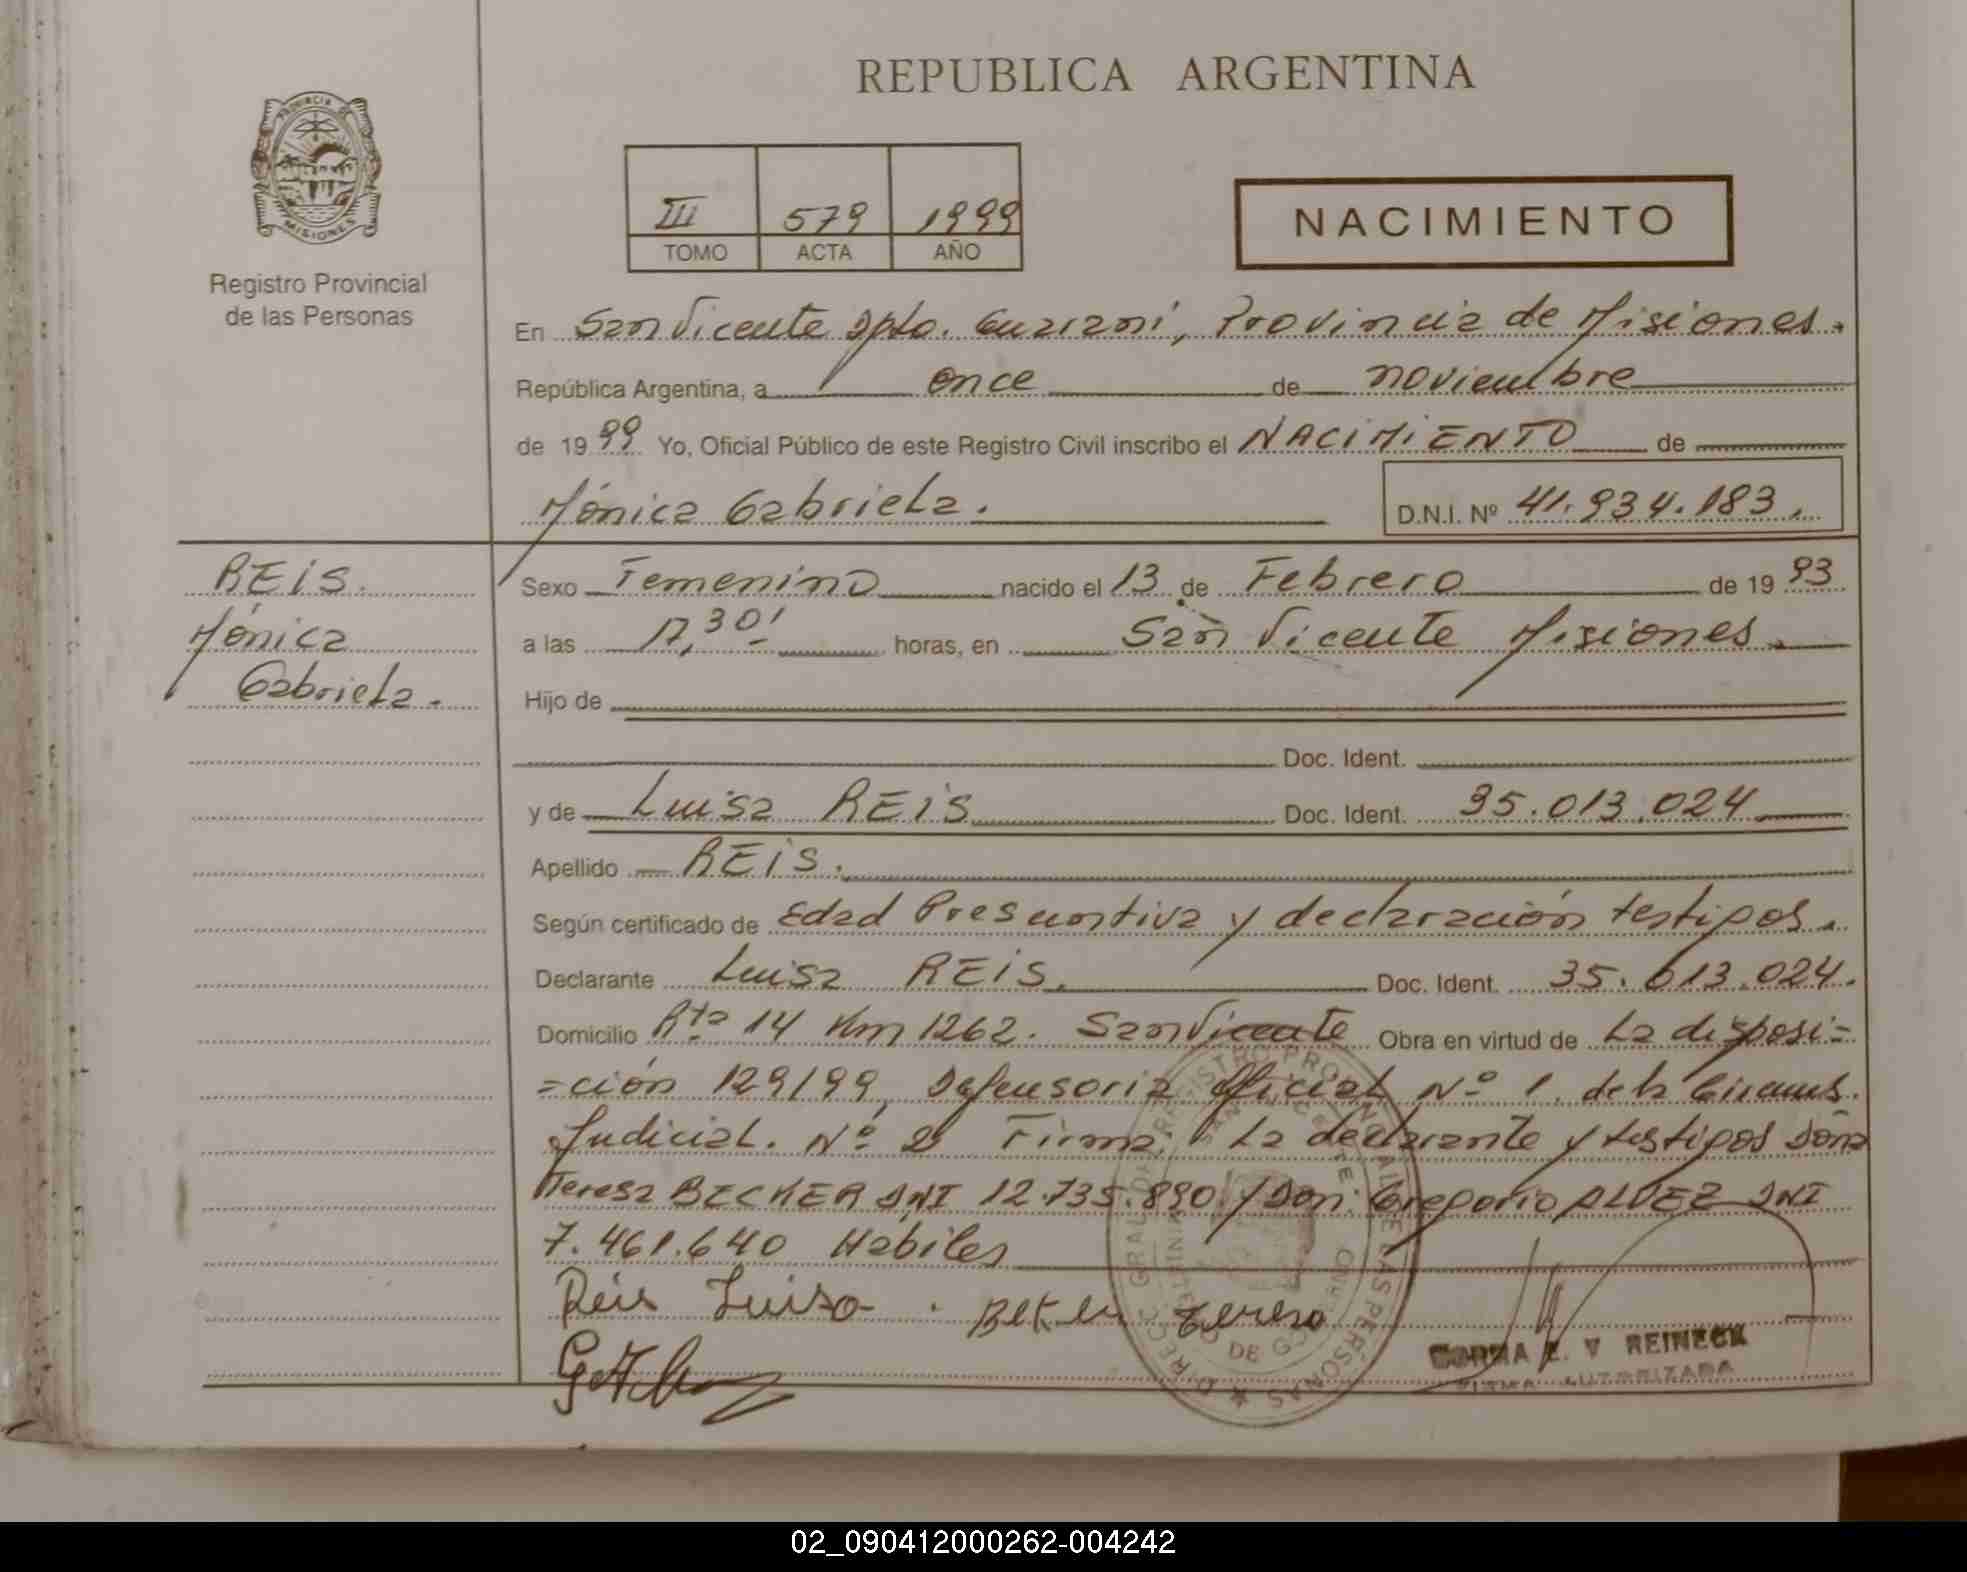 REPUBLICA ARGENTINA
PROVINCIA DE
MISIONES
Registro Provincial
de las Personas
III 579 1999
TOMO ACTA AÑO
NACIMIENTO
En San Vicente Dpto. Guaraní, Provincia de Misiones.
República Argentina, a once de noviembre
de 1999 Yo, Oficial Público de este Registro Civil inscribo el NACIMIENTO de
Mónica Gabriela.
D.N.I. Nº 41.934.183.
REIS.
Mónica
Gabriela.
Sexo Femenino nacido el 13 de Febrero de 1993
a las 17,30' horas, en San Vicente Misiones.
Hijo de
Doc. Ident.
y de Luisa REIS Doc. Ident. 35.013.024
Apellido REIS.
Según certificado de Edad Presuntiva y declaración testigos.
Declarante Luisa REIS. Doc. Ident. 35.013.024.
Domicilio Rta 14 Km 1262. San Vicente Obra en virtud de La disposi=
=ción 129/99, Defensoria Oficial Nº 1. de la Circuns.
Judicial. Nº 2 Firma: La declarante y testigos Doña
Teresa BECKER DNI 12.735.890 y Don: Gregorio ALVEZ DNI
7.461.640 Habiles
Reis Luisa. Teresa
NORMA E. V REINECK
FIRMA AUTORIZADA
DIRECC GRAL DEL REGISTRO PROVINCIAL DE LAS PERSONAS
SAN VICENTE
02_090412000262-004242